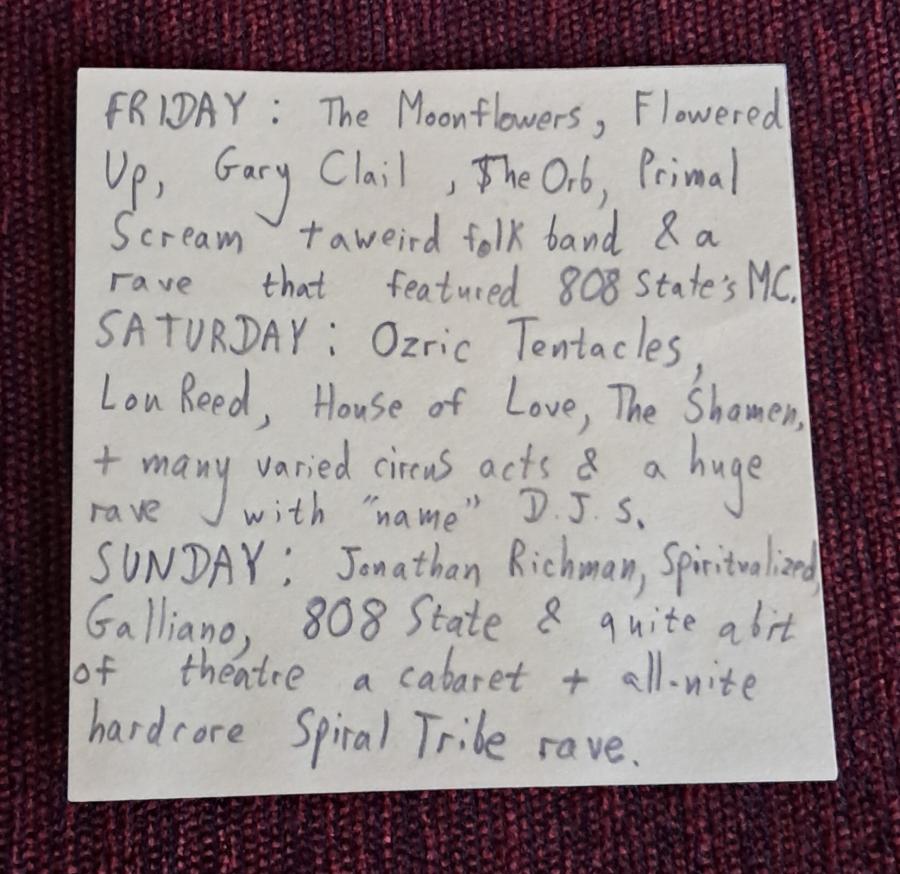 FRIDAY: The Moonflowers, Flowered
Up, Gary Clail, The Orb, Primal
Scream + a weird folk band & a
rave that featured 808 State's MC.
SATURDAY: Ozric Tentacles,
Lou Reed, House of Love, The Shamen,
+ many varied circus acts & a huge
rave with "name" D.J.s.
SUNDAY: Jonathan Richman, Spiritualized,
Galliano, 808 State & quite abit
of theatre a cabaret + all-nite
hardcore Spiral Tribe rave.